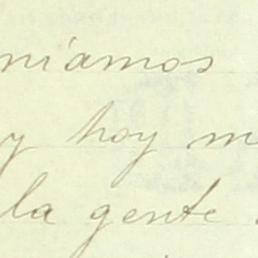 niamos
y hoy m
la gente